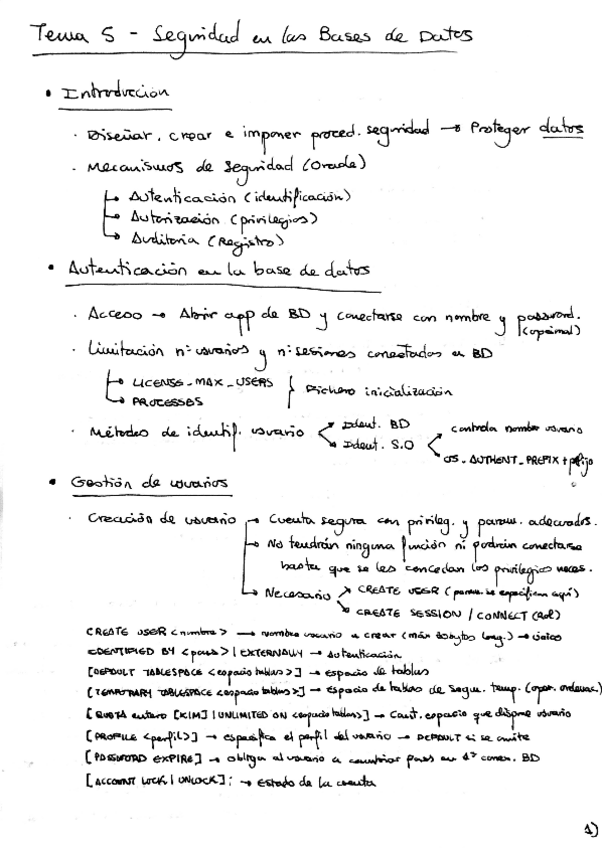 Tema 5 - Seguridad en las Bases de Datos
• Introducción
· Diseñar, crear e imponer proced. seguridad → Proteger datos
· Mecanismos de seguridad (Oracle)
→ Autenticación (identificación)
→ Autorización (privilegios)
→ Auditoria (Registro)
• Autenticación en la base de datos
· Acceso → Abrir app de BD y conectarse con nombre y password.
(opcional)
· Limitación nº usuarios y nº sesiones conectados en BD
→ LICENSE_MAX_USERS
→ PROCESSES } Fichero inicialización
· Métodos de identif. usuario < Ident. BD
Ident. S.O < controla nombre usuario
OS_AUTHENT_PREFIX + prefijo
• Gestión de usuarios
· Creación de usuario → Cuenta segura con privileg. y param. adecuados.
→ No tendrán ninguna función ni podrán conectarse
hasta que se les concedan los privilegios neces.
→ Necesario → CREATE USER (param. se especifican aquí)
→ CREATE SESSION / CONNECT (rol)
CREATE USER <nombre> → nombre usuario a crear (máx 30bytes long.) → único
IDENTIFIED BY <pass> | EXTERNALLY → Autenticación
[DEFAULT TABLESPACE <espacio tablas>] → espacio de tablas
[TEMPORARY TABLESPACE <espacio tablas>] → Espacio de tablas de segm. temp. (oper. ordenac.)
[QUOTA entero [K|M] | UNLIMITED ON <espacio tablas>] → Cant. espacio que dispone usuario
[PROFILE <perfil>] → especifica el perfil del usuario → DEFAULT si se omite
[PASSWORD EXPIRE] → obliga al usuario a cambiar pass en 1ª conex. BD
[ACCOUNT LOCK | UNLOCK]; → Estado de la cuenta
1)